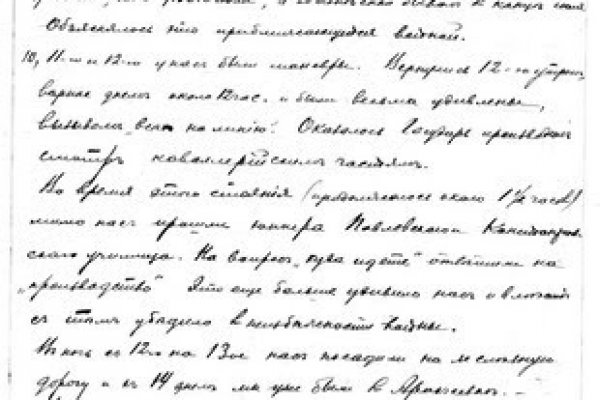 Объяснялось это приближающейся войной.
10, 11-го и 12-го у нас были маневры. Вернулись 12-го утром,
вернее днем около 12 час. и были весьма удивлены,
вызовом "всех на линию". Оказалось Государь производил
смотр кавалерийским частям.
Во время этого стояния (продолжалось около 1½ часов)
мимо нас прошли юнкера Павловского
училища. На вопрос "куда идете" ответили на
"производство". Это еще больше удивило нас и
с тем убедило в неизбежности войны.
В ночь с 12-го на 13-ое нас посадили на железную
дорогу и 14 днем мы уже были в